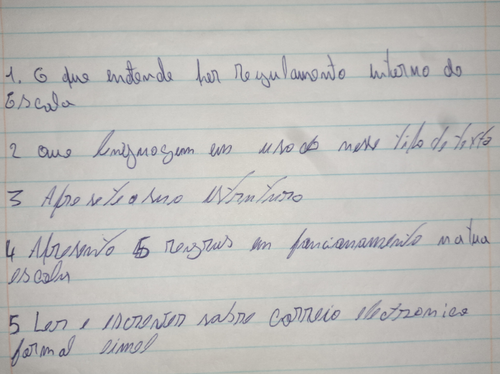 1. O que entende por regulamento interno do
Escola
2 que linguagem em usado nesse tipo de texto
3 Apresete a suo estruturo
4 Apresento 5 regras em funcionamento na tua
escola
5 Ler e escrever sobre correio electronico
formal eimel